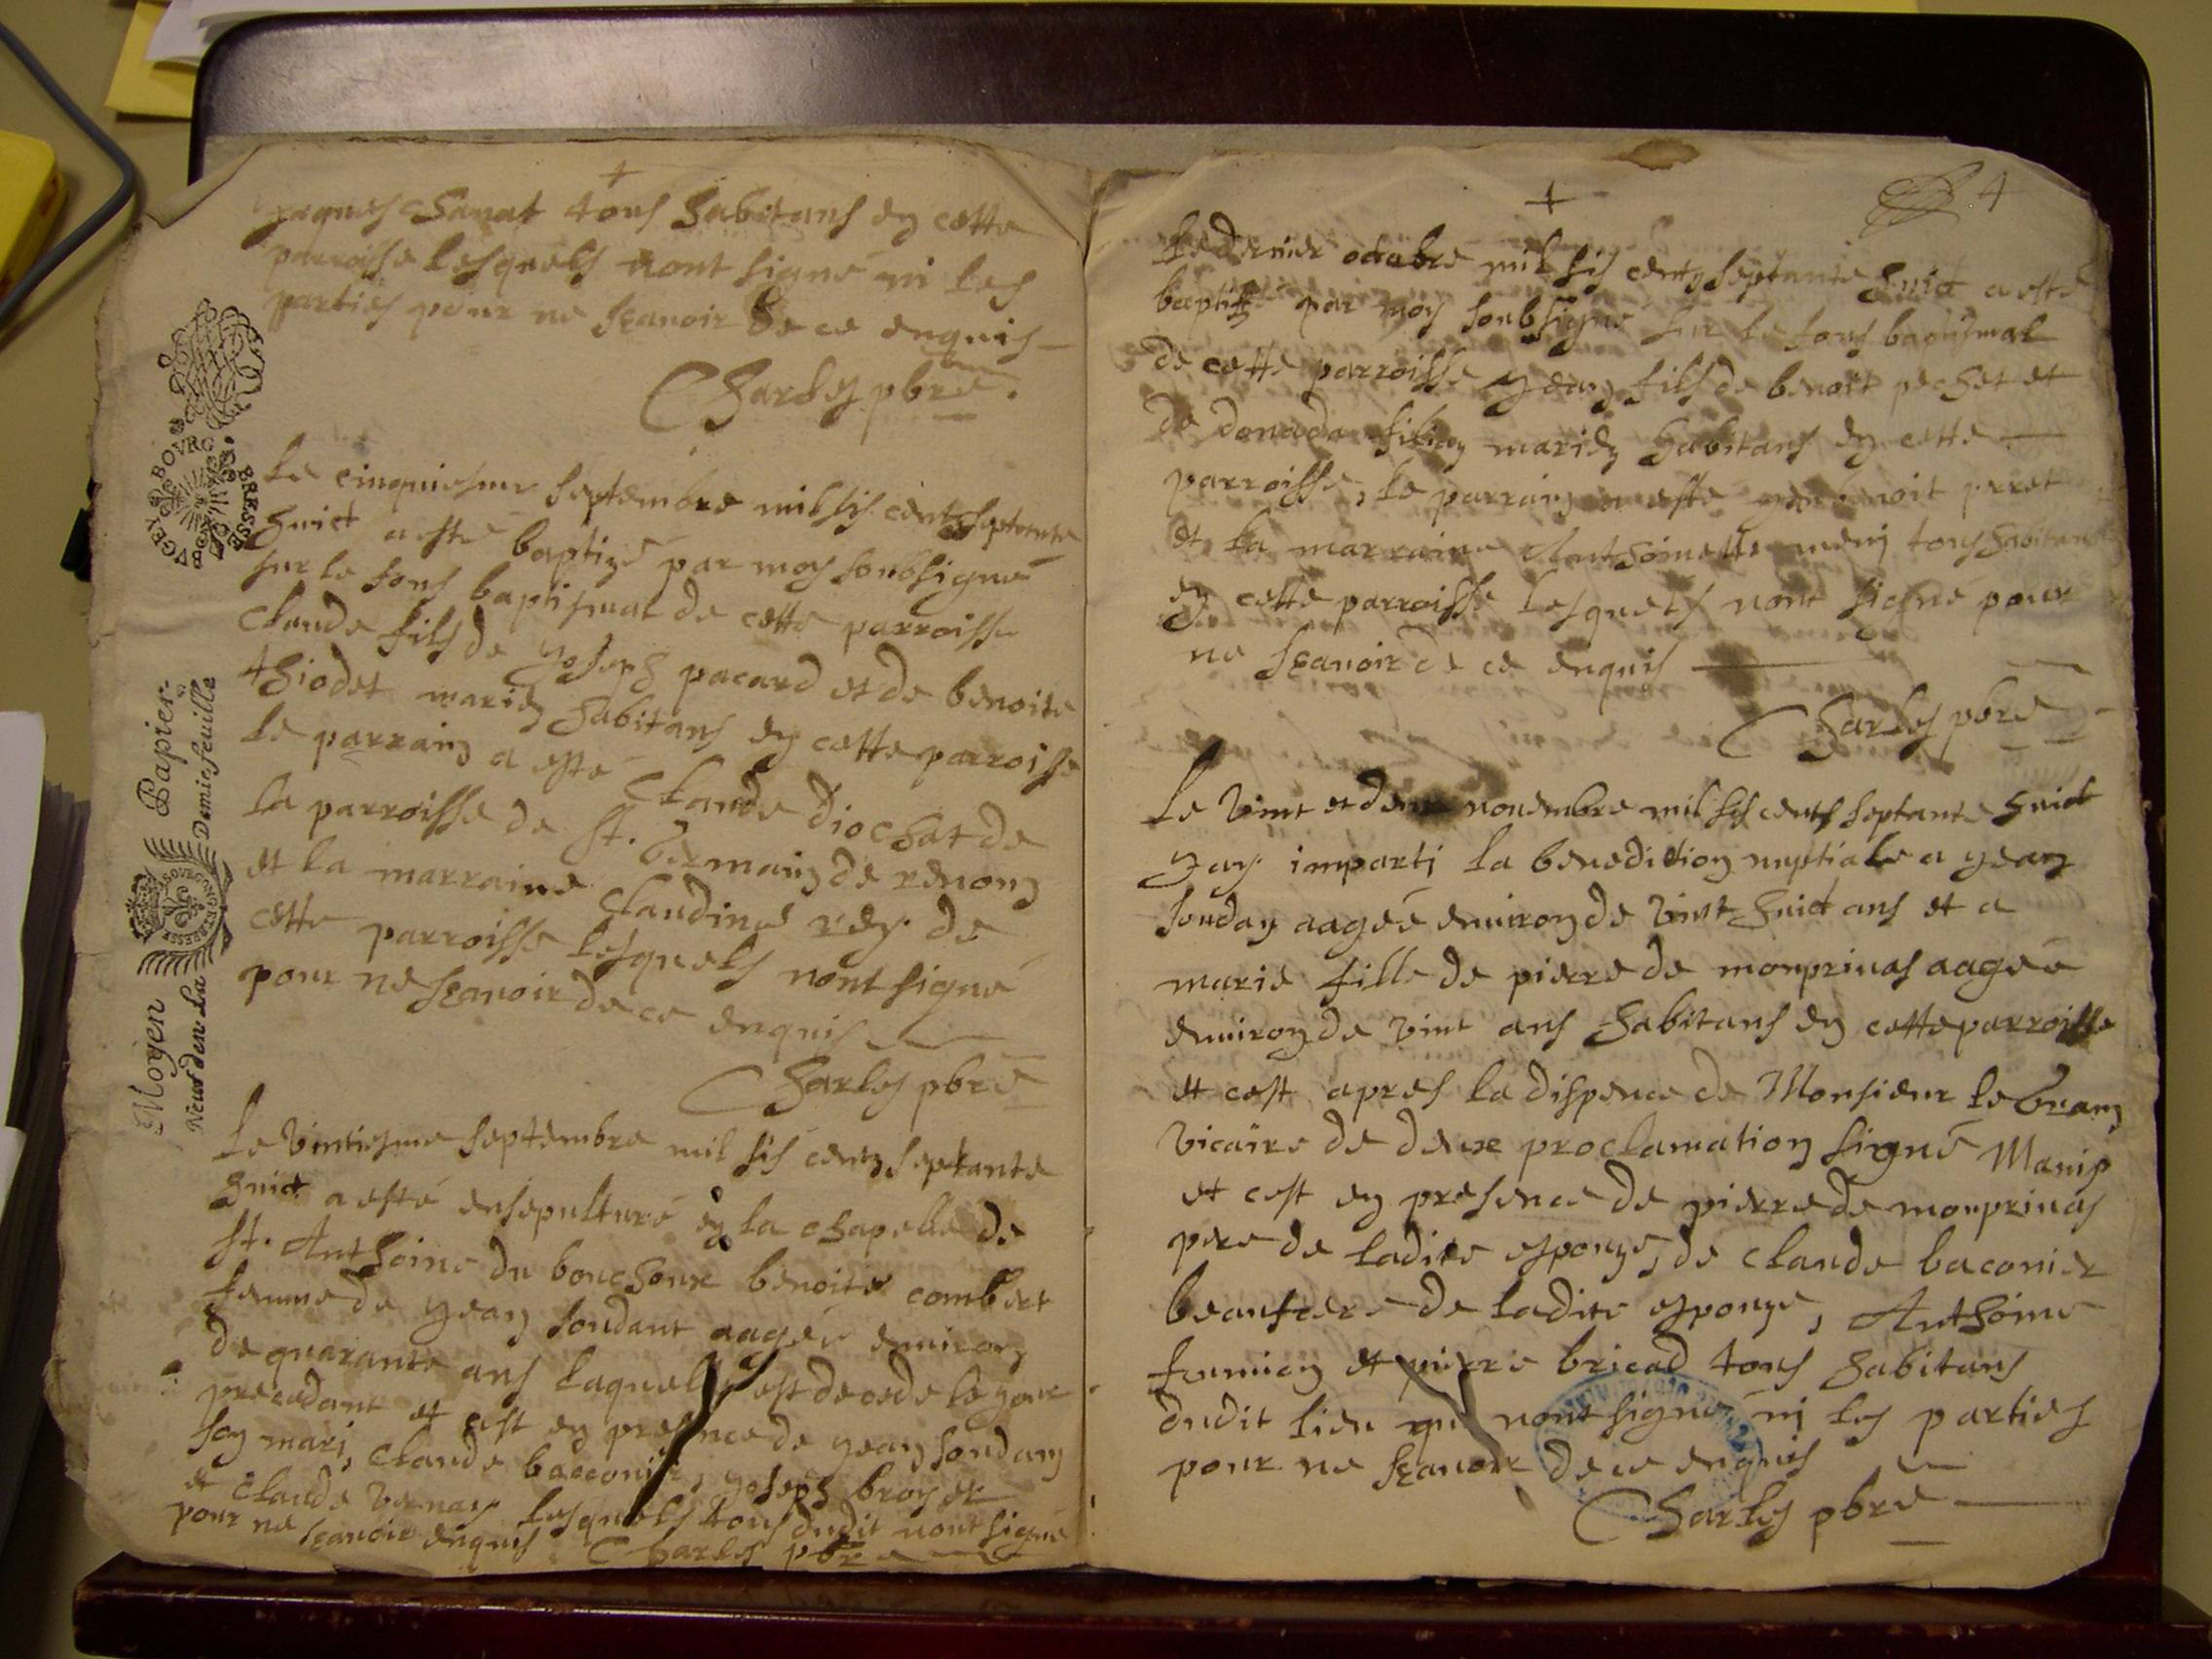 +
jaques Chanat tous habitans en cette
parroisse lesquels nont signé ni les
parties pour ne scauoir de ce enquis
Charles pbre.
Le cinquiesme septembre mil sis cents septante
huict a esté baptizé par moy soubsigné
sur le fons baptismal de cette parroisse
Claude fils de Joseph pacard et de benoite
thiodet mariez habitans en cette parroisse
le parrain a esté Claude diochat de
la parroisse de st. Germain de renom
et la marraine Claudine rey de
cette parroisse lesquels nont signé
pour ne scauoir de ce enquis
Charles pbre
Le vintiesme septembre mil sis cents septante
huict a esté ensepulturé en la chapelle de
st. Anthoine du bouchoux benoite combet
femme de Jean soudant aagée enuiron
de quarante ans laquelle est decede le jour
precedant et cest en presence de Jean soudan
son mari, Claude baconier, Joseph broyer
et Claude vernay lesquels tous dudit nont signé
pour ne scauoir enquis Charles pbre
BVGEY BOVRG BRESSE
Moyen Papier
Neuf den. La Demie feuille
+
4
Le dernier octobre mil sis cents septante huict a esté
baptisé par moy soubsigné sur le fons baptismal
de cette parroisse Jean fils de benoit pechet et
de donada filion mariez habitans en cette
parroisse, le parrain a esté benoit perret
et la marraine Anthoinette tous habitans
en cette parroisse lesquels nont signé pour
ne scauoir de ce enquis
Charles pbre
Le vint et deux nouembre mil sis cents septante huict
Jay imparti la benediction nuptiale a Jean
soudan aagée enuiron de vint huict ans et a
marie fille de pierre de monprinas aagée
enuiron de vint ans habitans en cette parroisse
et cest apres la dispence de Monsieur le Gran
vicaire de deux proclamation signé Manis
et cest en presence de pierre de monprinas
pere de ladite espouze, de Claude baconier
beaufrere de ladite espouze, Anthoine
fumion et pierre bricod tous habitans
dudit lieu qui nont signé ni les parties
pour ne scauoir de ce enquis
Charles pbre